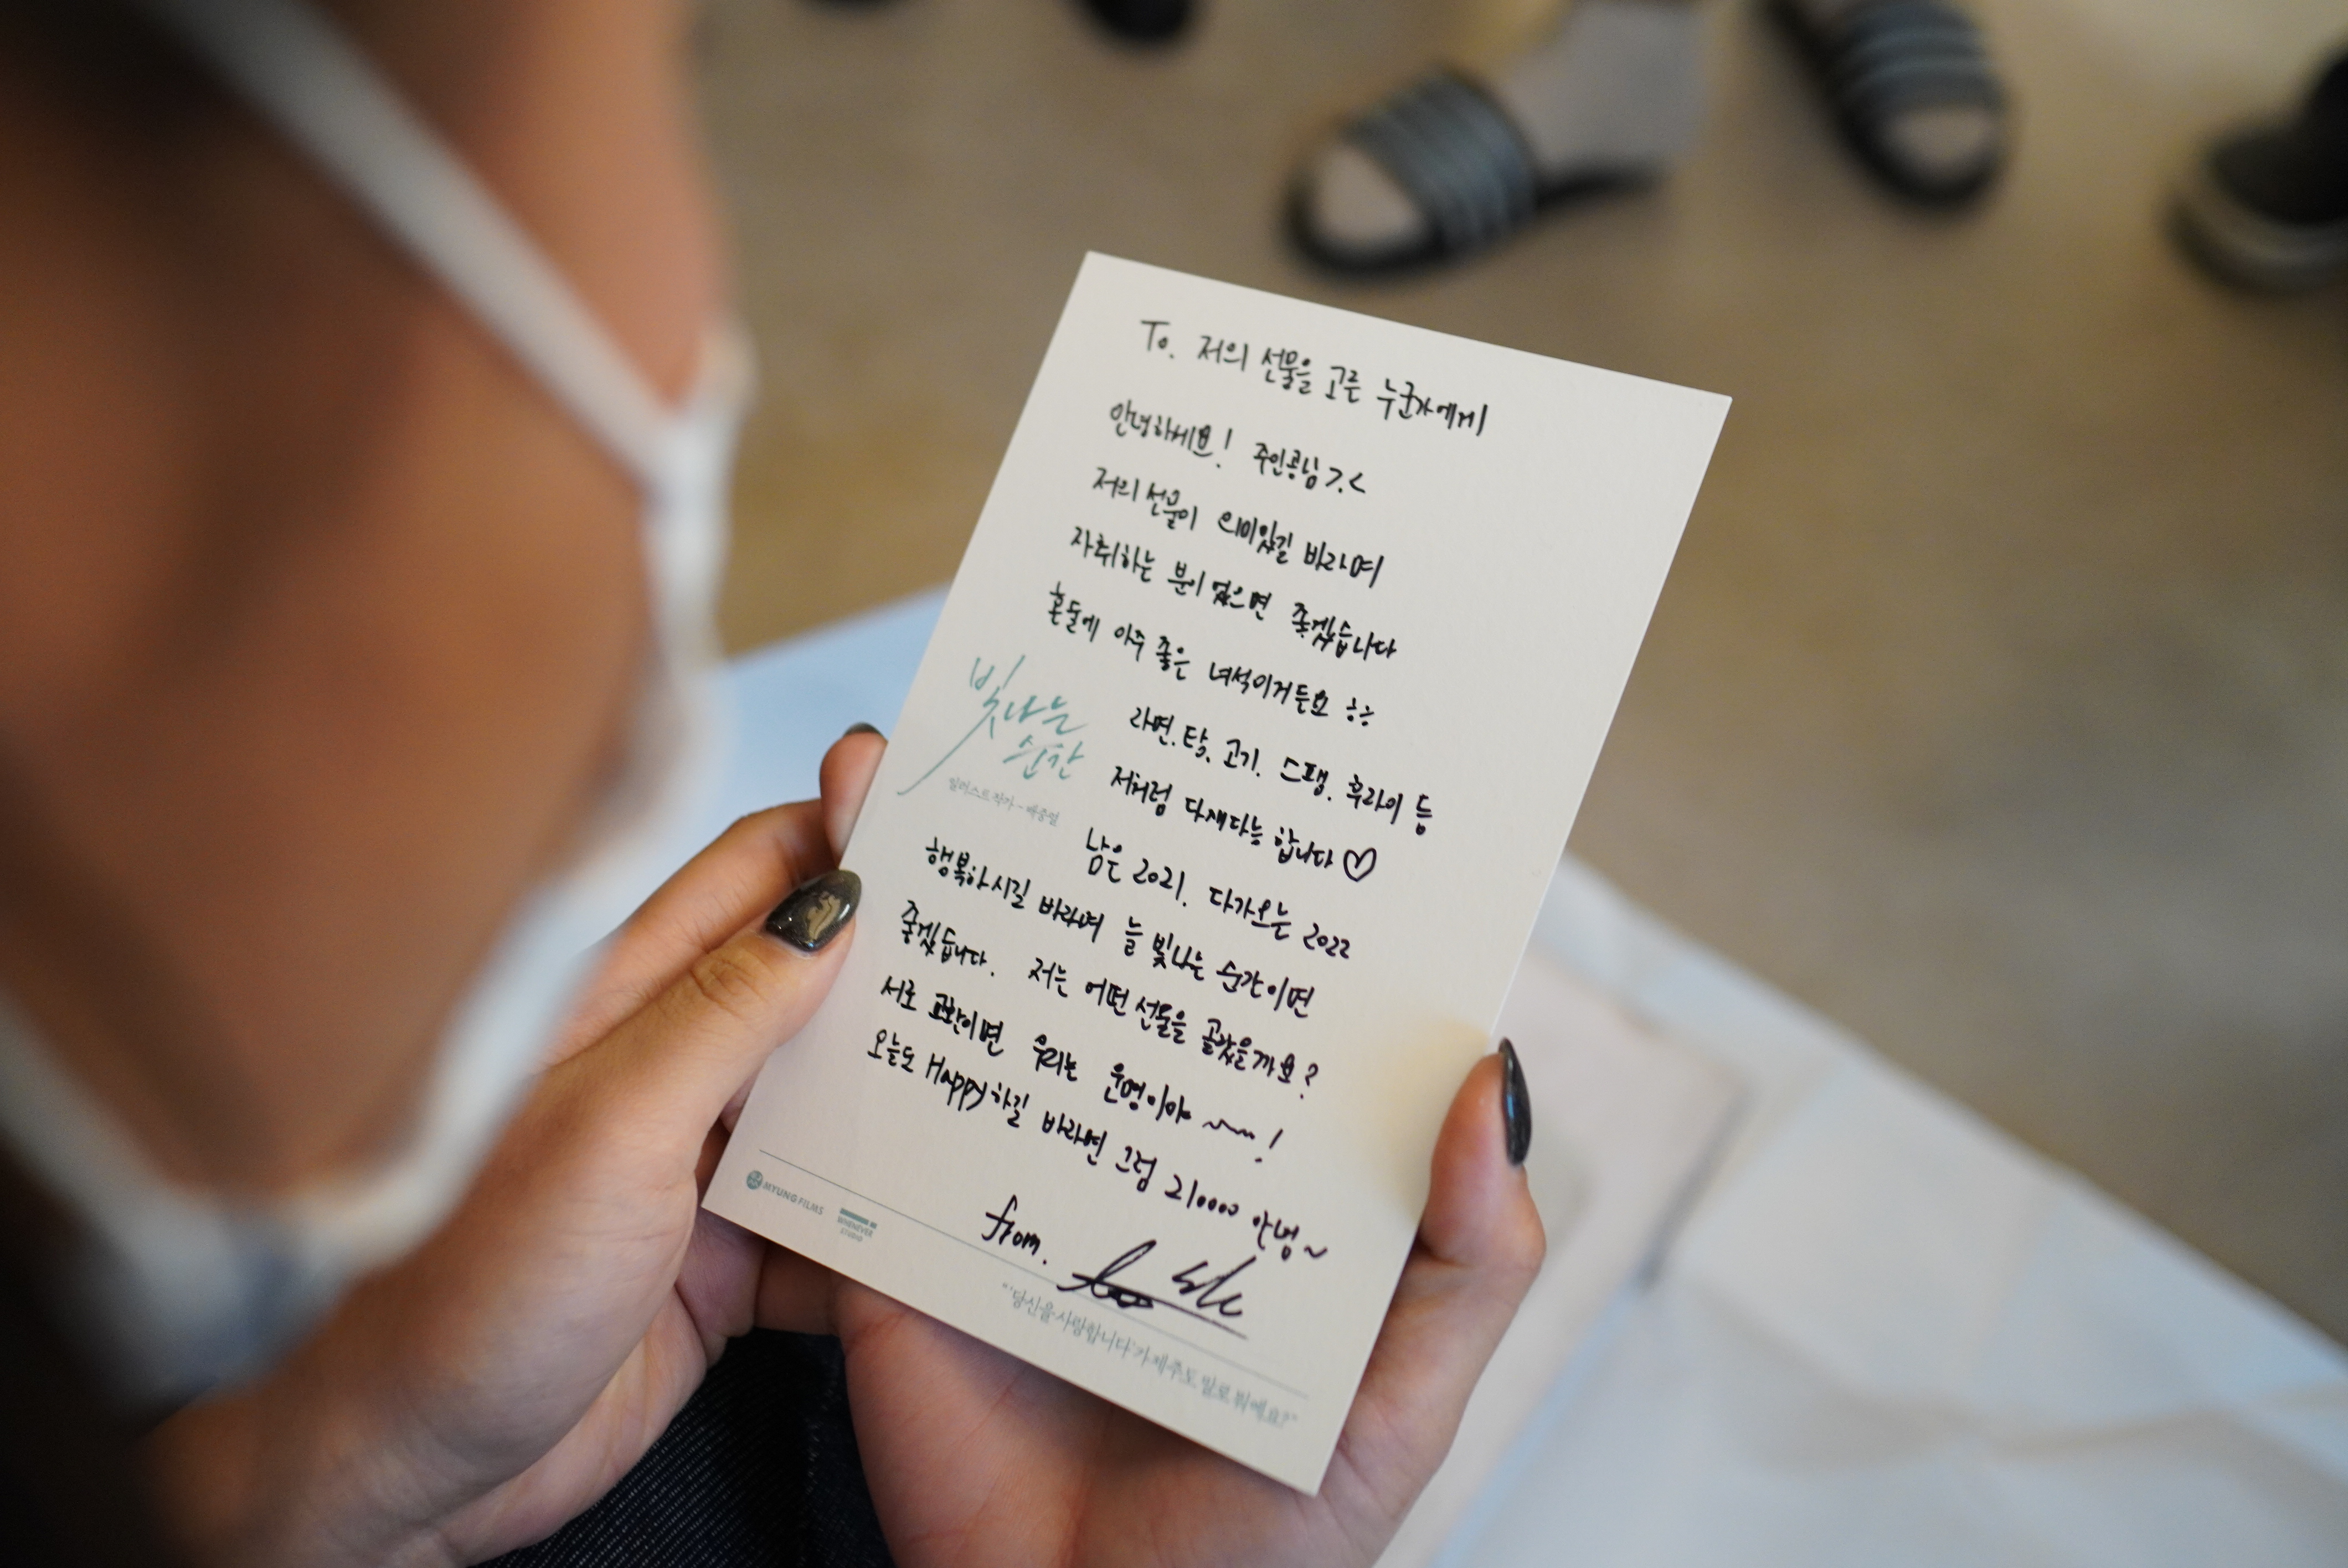 To. 저의 선물을 고른 누군가에게
안녕하세요! 주인공님 >.<
저의 선물이 의미있길 바라며
자취하는 분이 었으면 좋겠습니다
혼둘에 아주 좋은 녀석이거든요 ㅎㅎ
라면. 탕. 고기. 스팸. 후라이 등
저처럼 다재다능 합니다 ♡
빛나는
순간
일러스트 작가 - 배중열
남은 2021. 다가오는 2022
행복하시길 바라며 늘 빛나는 순간이면
좋겠습니다. 저는 어떤 선물을 골랐을까요?
서로 교환이면 우리는 운명이야 ~~~!
오늘도 Happy하길 바라면 그럼 210000 안녕~
from.
MYUNG FILMS
WHENEVER
STUDIO
"'당신을 사랑합니다'가 제주도 말로 뭐예요?"